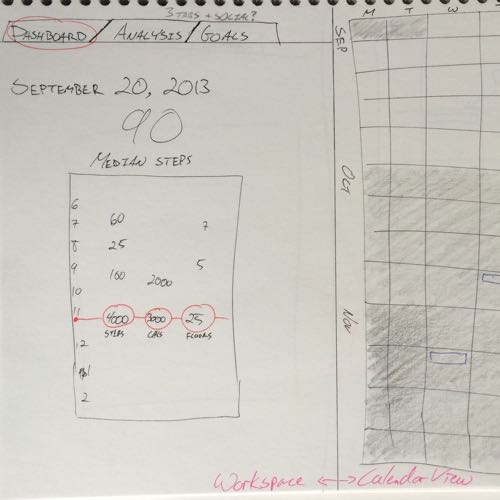 3 TABS + SOCIAL?
DASHBOARD / ANALYSIS / GOALS
SEPTEMBER 20, 2013
90
MEDIAN STEPS
6
7 60 7
8 25
9 100 2000 5
10
11 4000 3000 25
STEPS CALS FLOORS
12
1
2
M T W
SEP
OCT
NOV
Workspace <-> Calendar View